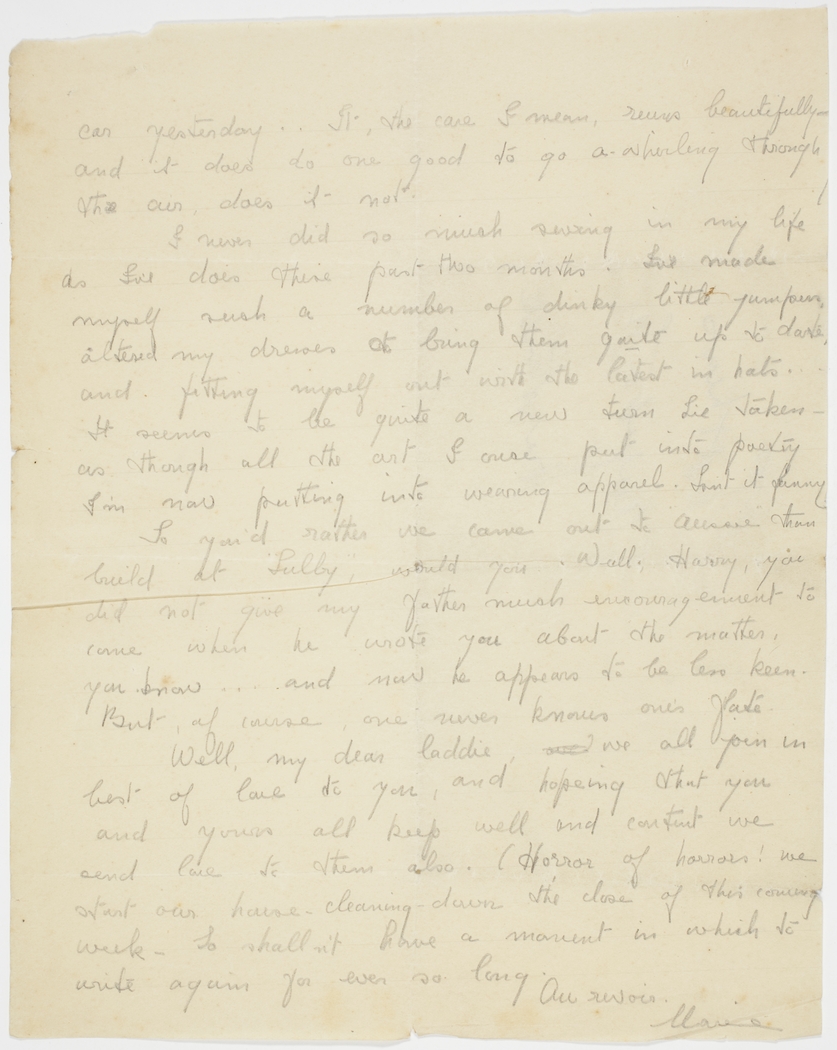 car yesterday .. It, the car I mean, runs beautifully—
and it does do one good to go a-whirling through
the air, does it not.
I never did so much sewing in my life
as I've does these past two months. I've made
myself such a number of dinky little jumpers,
altered my dresses to bring them quite up to date,
and. fitting myself out with the latest in hats...
It seems to be quite a new turn I've taken —
as though all the art I once put into poetry
I'm now putting into wearing apparel. Isn't it funny
So you'd rather we came out to than
build at "Sulby", would you. Well, Harry, you
did not give my father much encouragement to
come when he wrote you about the matter,
you know .... and now he appears to be less keen.
But, of course, one never knows one's fate.
Well, my dear laddie, we all join in
best of love to you, and hopeing that you
and yours all keep well and content we
send love to them also. (Horror of horrors! we
start our house-cleaning-down the close of this coming
week — So shall'nt have a moment in which to
write again for ever so long.
Au revoir.